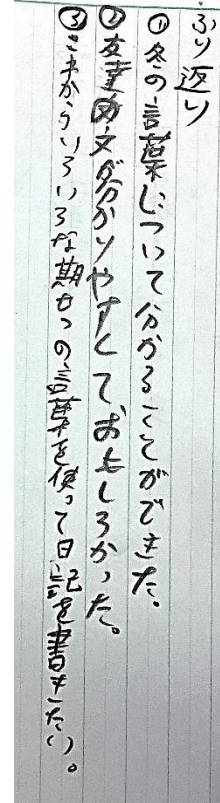 ふり返り
①冬の言葉について分かることができた。
②友達の文が分かりやすくておもしろかった。
③これからいろいろな期せつの言葉を使って日記を書きたい。